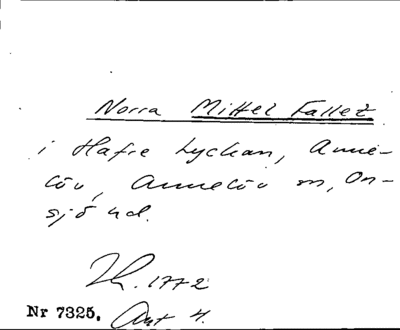 Norra Mittel Fallet
i Hafre Lyckan, Anne-
löv, Annelöv sn, On-
sjö hd.
Lh. 1772
Nr 7325. Akt 4.